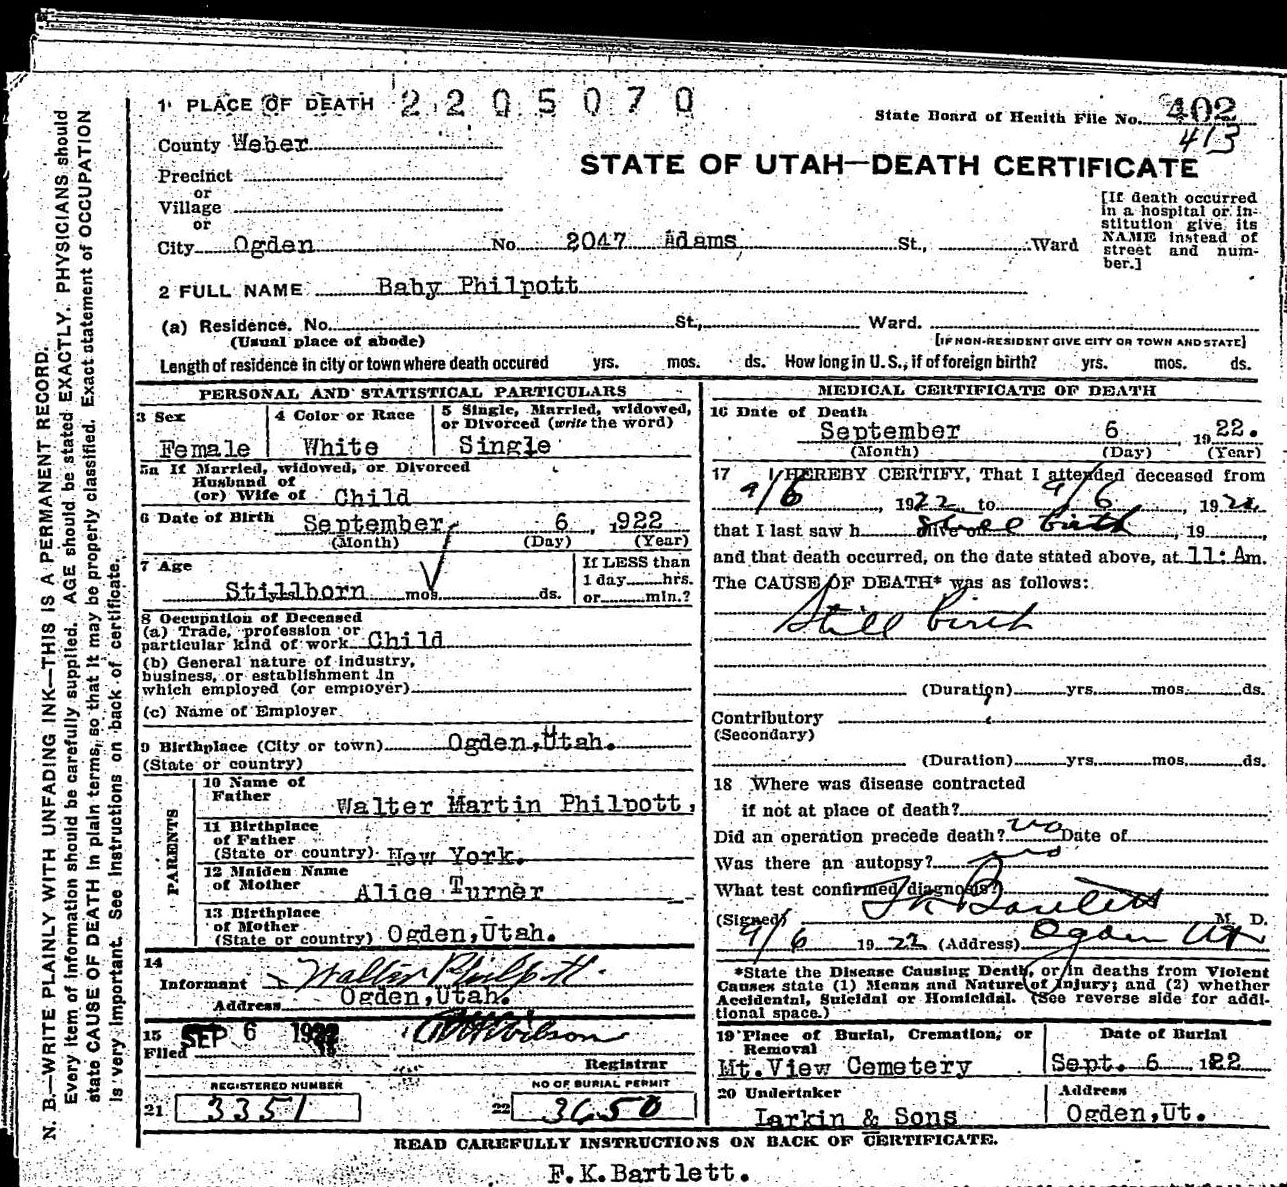 1 PLACE OF DEATH 2205070
State Board of Health File No. 402
413
County Weber
STATE OF UTAH—DEATH CERTIFICATE
Precinct
or
Village
or
City Ogden No. 2047 Adams St., Ward
[If death occurred in a hospital or institution give, its NAME instead of street and number.]
2 FULL NAME Baby Philpott
(a) Residence. No. St., Ward.
(Usual place of abode) [IF NON-RESIDENT GIVE CITY OR TOWN AND STATE]
Length of residence in city or town where death occured yrs. mos. ds. How long in U.S., if of foreign birth? yrs. mos. ds.
PERSONAL AND STATISTICAL PARTICULARS
3 Sex 4 Color or Race 5 Single, Married, widowed,
or Divorced (write the word)
Female White Single
5a If Married, widowed, or Divorced
Husband of
(or) Wife of Child
6 Date of Birth September 6, 1922
(Month) (Day) (Year)
7 Age If LESS than
1 day hrs.
Stillborn mos. ds. or min.?
8 Occupation of Deceased
(a) Trade, profession or
particular kind of work Child
(b) General nature of industry,
business, or establishment in
which employed (or employer)
(c) Name of Employer
9 Birthplace (City or town) Ogden,Utah.
(State or country)
PARENTS
10 Name of
Father Walter Martin Philpott,
11 Birthplace
of Father
(State or country) New York.
12 Maiden Name
of Mother Alice Turner
13 Birthplace
of Mother
(State or country) Ogden,Utah.
14
Informant Walter Philpott.
Address Ogden,Utah.
15 SEP 6 1922
Filed Wilson
Registrar
REGISTERED NUMBER NO OF BURIAL PERMIT
21 3351 22 3650
MEDICAL CERTIFICATE OF DEATH
16 Date of Death
September 6, 1922.
(Month) (Day) (Year)
17 I HEREBY CERTIFY, That I attended deceased from
9/6, 1922 to 9/6, 1922
that I last saw h alive on still birth, 19
and that death occurred, on the date stated above, at 11:Am.
The CAUSE OF DEATH* was as follows:
Still birth
(Duration) yrs. mos. ds.
Contributory
(Secondary)
(Duration) yrs. mos. ds.
18 Where was disease contracted
if not at place of death?
Did an operation precede death? no Date of
Was there an autopsy? no
What test confirmed diagnosis?
(Signed) F K Bartlett M. D.
9/6 1922 (Address) Ogden Ut
*State the Disease Causing Death, or in deaths from Violent
Causes state (1) Means and Nature of Injury; and (2) whether
Accidental, Suicidal or Homicidal. (See reverse side for addi-
tional space.)
19 Place of Burial, Cremation, or Date of Burial
Removal
Mt.View Cemetery Sept. 6 1922
20 Undertaker Address
Larkin & Sons Ogden,Ut.
READ CAREFULLY INSTRUCTIONS ON BACK OF CERTIFICATE.
F.K.Bartlett.
N. B.—WRITE PLAINLY WITH UNFADING INK—THIS IS A PERMANENT RECORD.
Every item of information should be carefully supplied. AGE should be stated EXACTLY. PHYSICIANS should
state CAUSE OF DEATH in plain terms, so that it may be properly classified. Exact statement of OCCUPATION
is very important. See instructions on back of certificate.